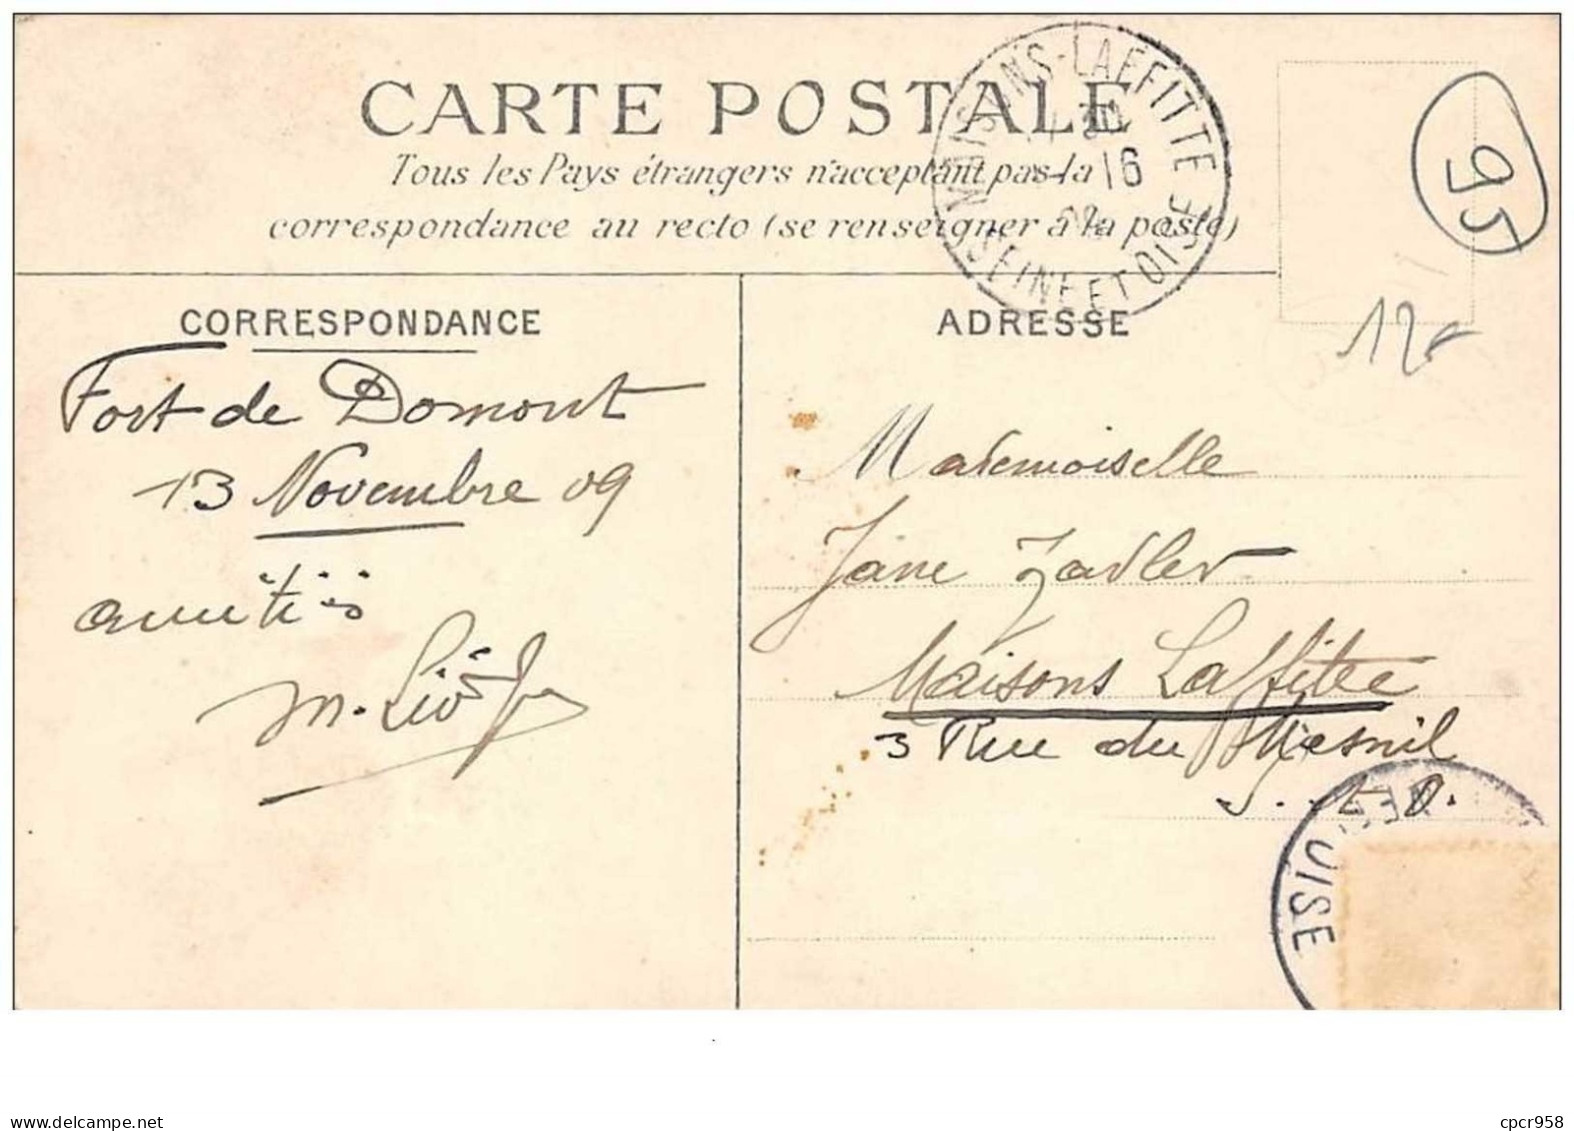 CARTE POSTALE
Tous les Pays étrangers n'acceptent pas la
correspondance au recto (se renseigner à la poste)
MAISONS-LAFFITTE
16
SEINE ET OISE
95
12
CORRESPONDANCE
ADRESSE
Fort de Domont
13 Novembre 09
amitiés
Mademoiselle
Jane Zadler
Maisons Laffitte
3 Rue du Mesnil
S. et O.
OISE
www.delcampe.net
cpcr958